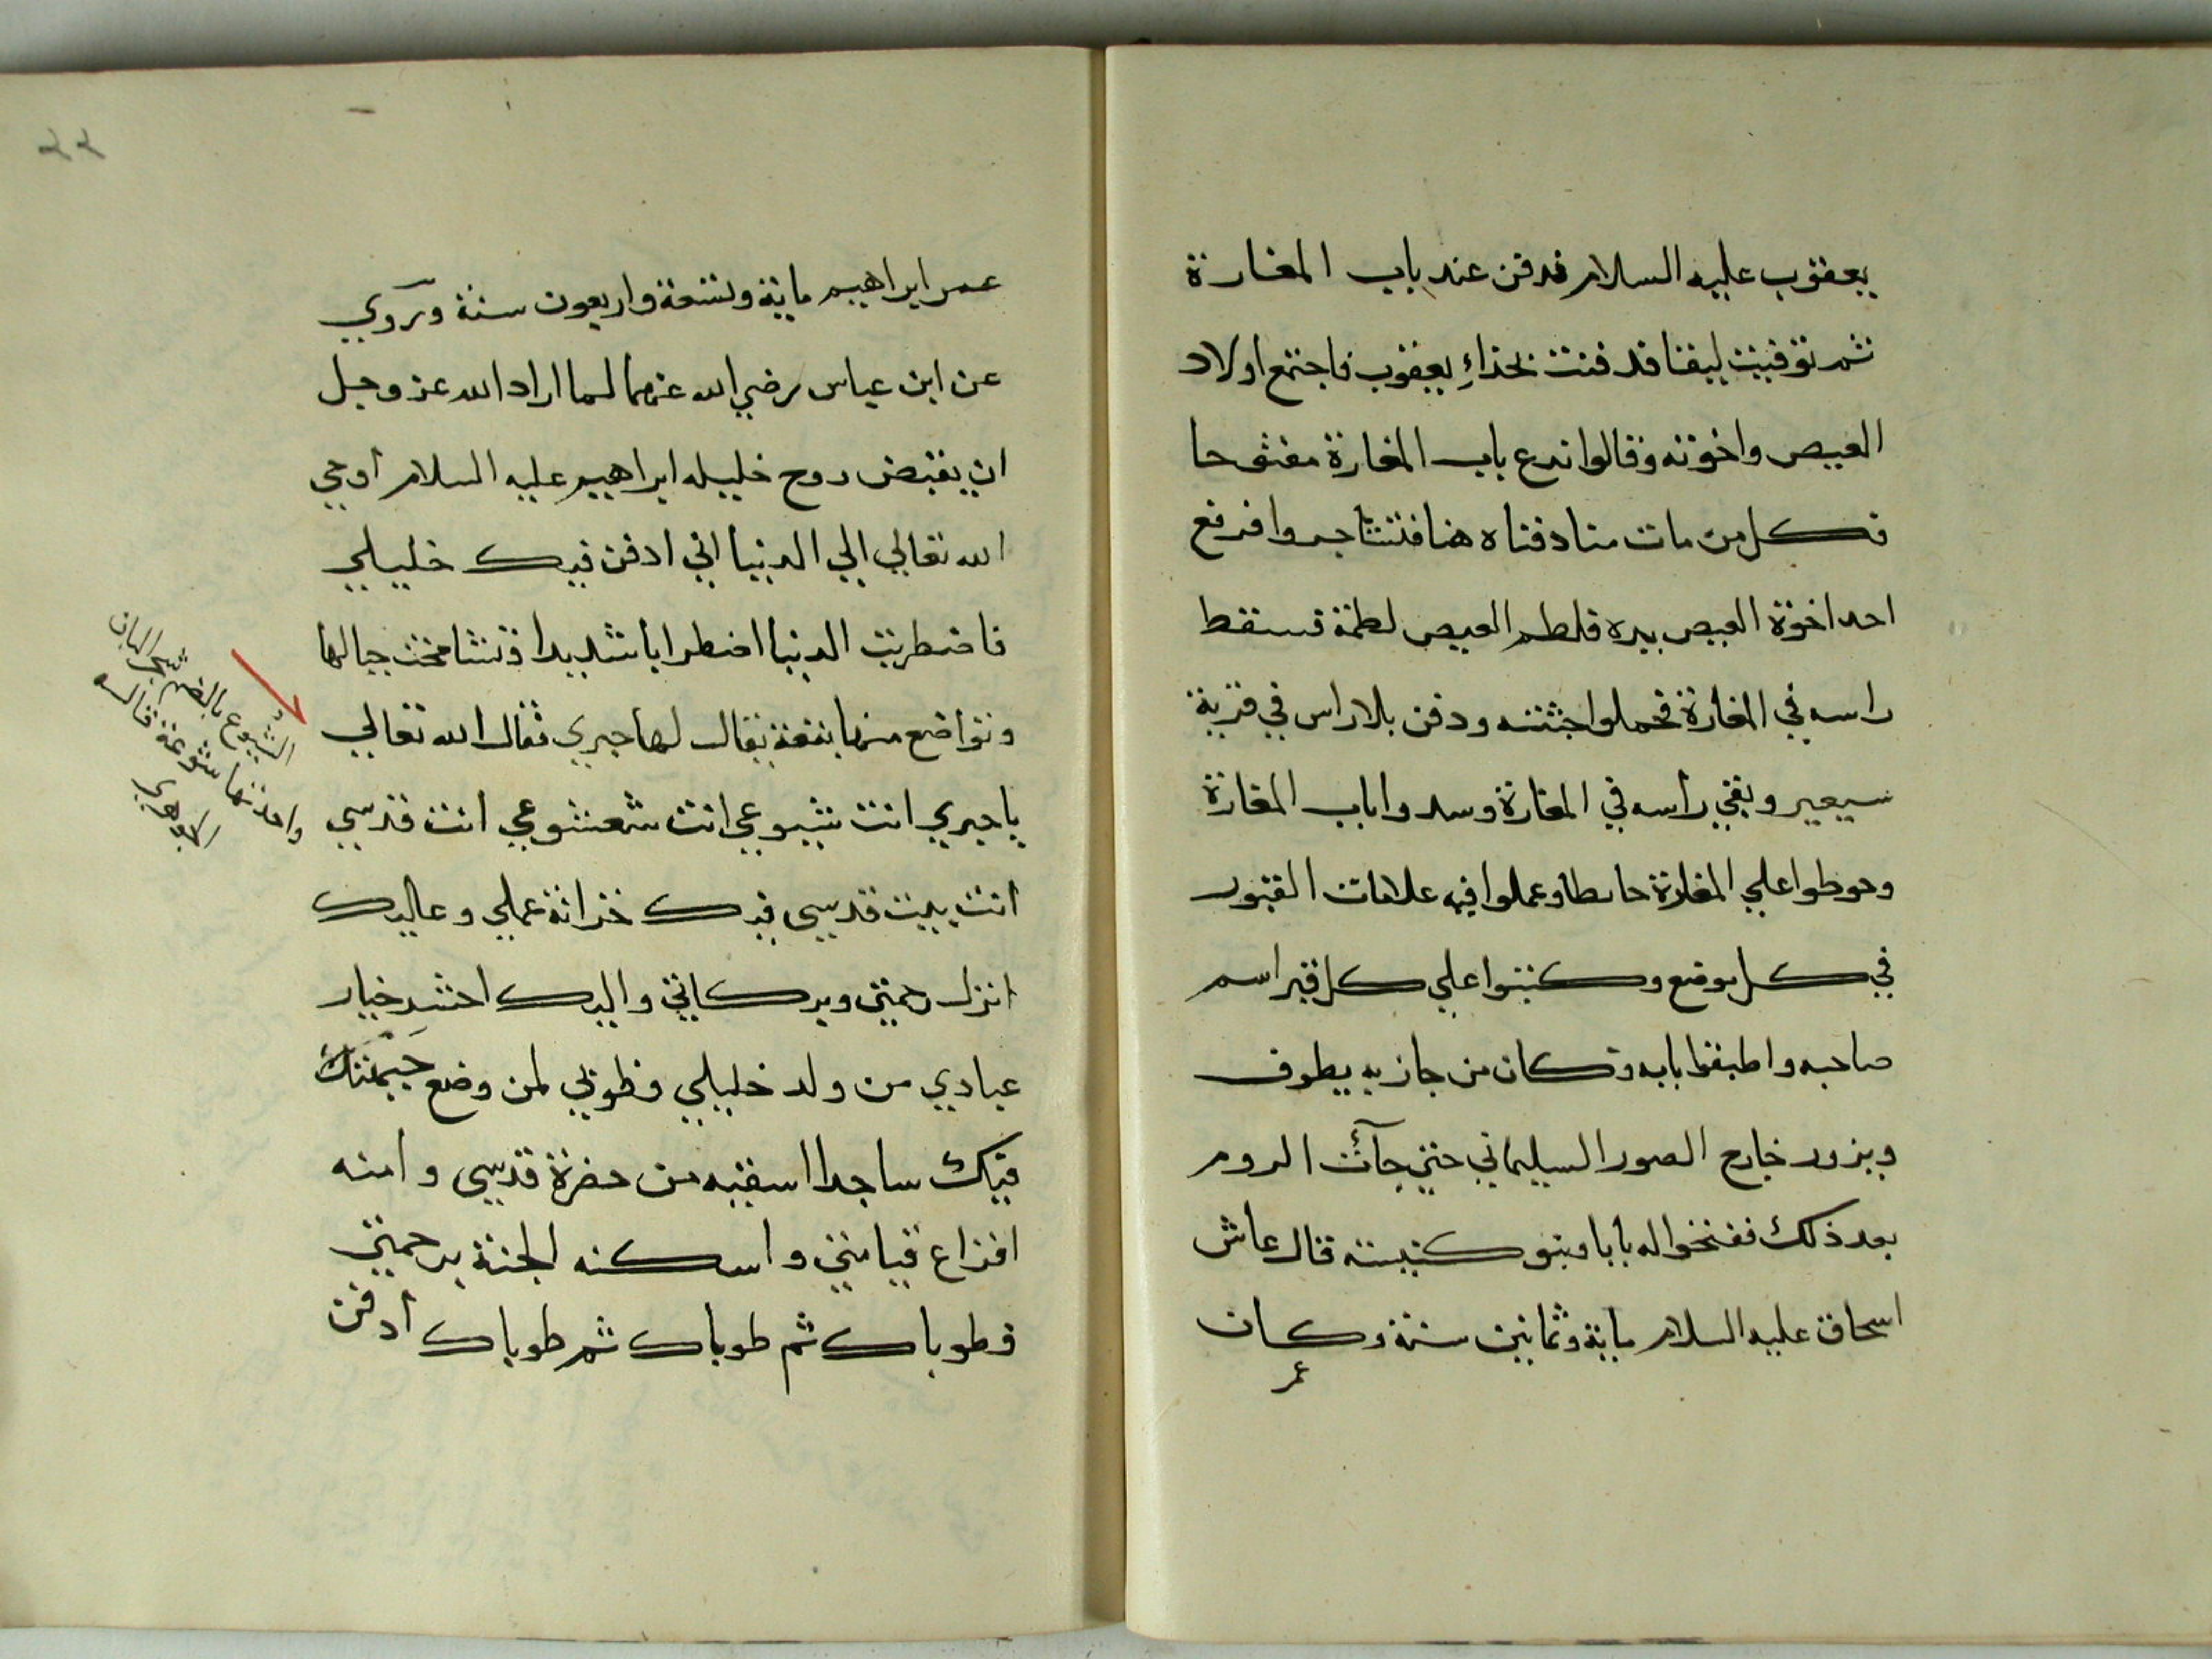 يعقوب عليه السلام فدفن عند باب المغارة
ثم توفيت ليقا فدفنت بحذاءِ يعقوب فاجتمع اولاد
العيص واخوته وقالوا ندع باب المغارة مفتوحا
فكل من مات منا دفناه هنا فتشاجروا فرفع
احد اخوة العيص يده فلطم العيص لطمة فسقط
راسه في المغارة فحملوا جثته ودفن بلا راس في قرية
سيعير وبقي رأسه في المغارة وسدوا باب المغارة
وحوطوا علي المغارة حايطا وعملوا فيه علامات القبور
في كل موضع وكتبوا علي كل قبر اسم
صاحبه واطبقوا بابه وكان من جاز به يطوف
ويزور خارج الصور السليماني حتي جآئت الروم
بعد ذلك ففتحوا له بابا وبنو كنيسة قال عاش
اسحاق عليه السلام ماية وثمانين سنة وكان
عمر
عمر ابراهيم ماية وتسعة واربعون سنة ورَوي
عن ابن عباس رضي الله عنهما لما اراد الله عز وجل
ان يقبض روح خليله ابراهيم عليه السلام أوحي
الله تعالي الي الدنيا اني ادفن فيك خليلي
فاضطربت الدنيا اضطرابا شديدا وتشامخت جبالها
وتواضع منها بقعة يقال لها حبري فقال الله تعالي
يا حبري انت شيوعي انت شعشوعي انت قدسي
انت بيت قدسي فيك خزانة عملي وعاليك
انزل رحمتي وبركاتي واليك احشر خيار
عبادي من ولد خليلي وطوبي لمن وضع جبهته
فيك ساجدا اسقيه من حضرة قدسي وامنه
افزاع قيامتي واسكنه الجنة برحمتي
فطوباك ثم طوباك ثم طوباك أدفن
الشُيوع بالضم شجر البان
واحدتها شوعة قاله
الجوهري